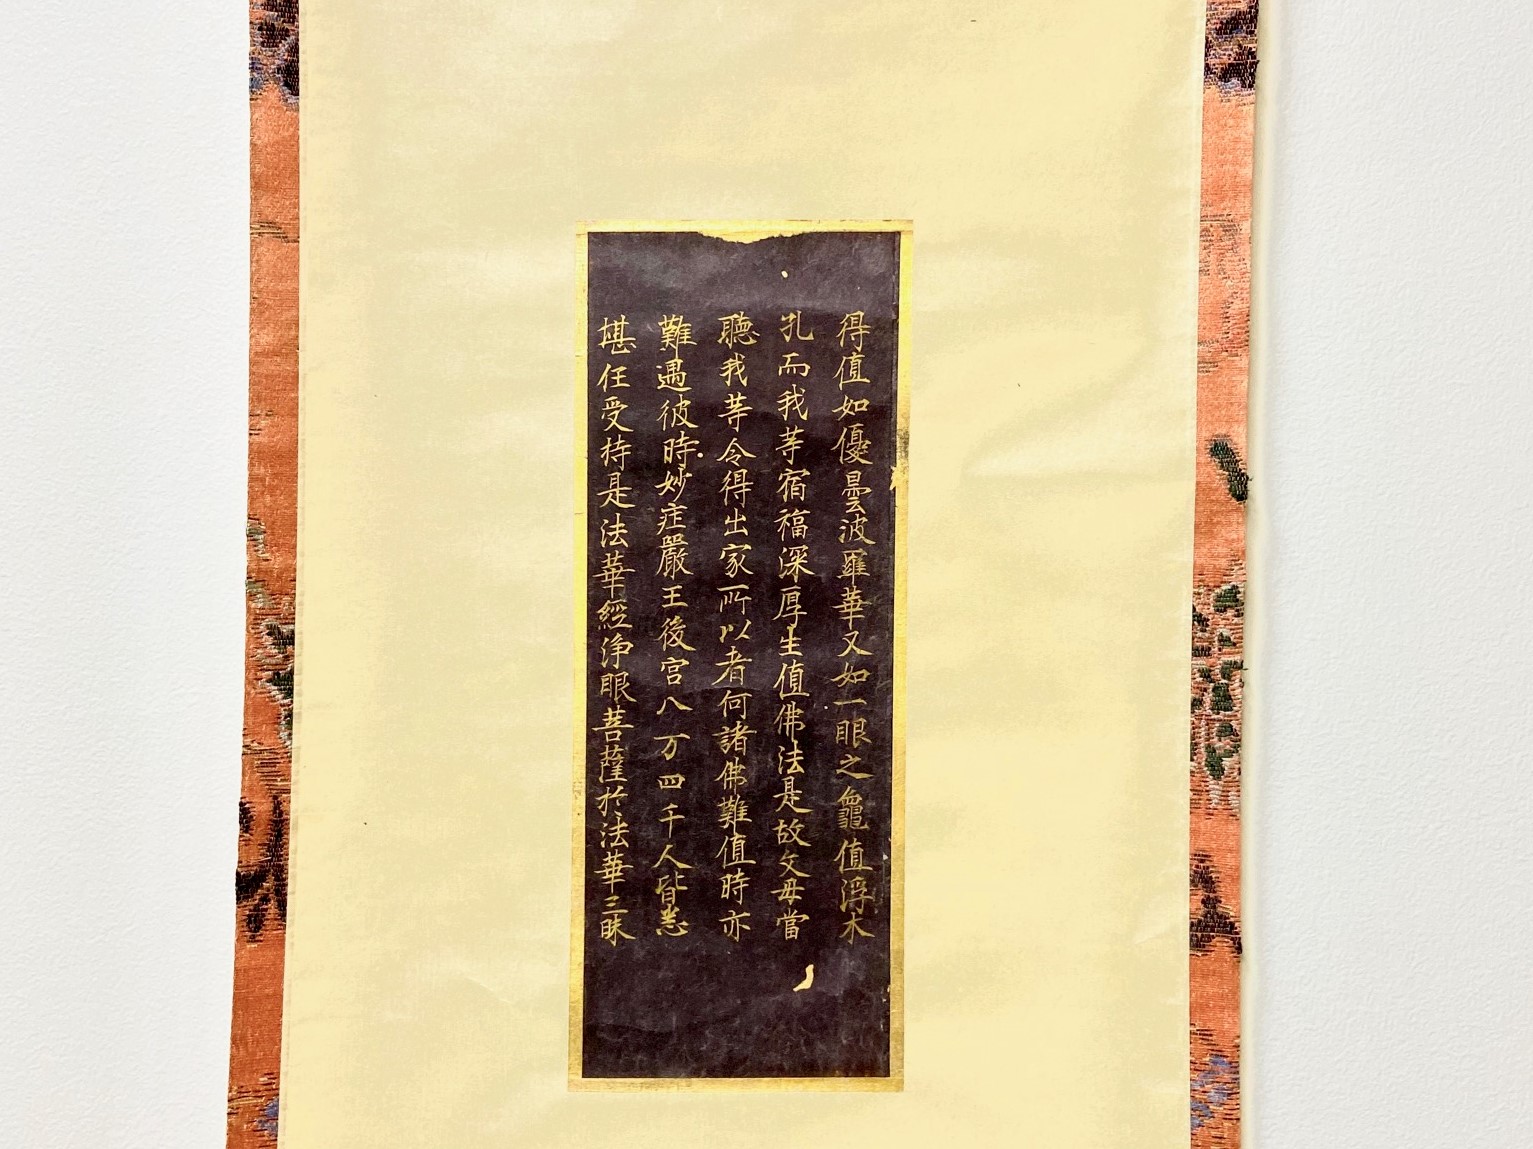 得值如優曇波羅華又如一眼之龜值浮木
孔而我等宿福深厚生值佛法是故父母當
聽我等令得出家所以者何諸佛難值時亦
難遇彼時妙庄嚴王後宮八万四千人皆悉
堪任受持是法華經淨眼菩薩於法華三昧